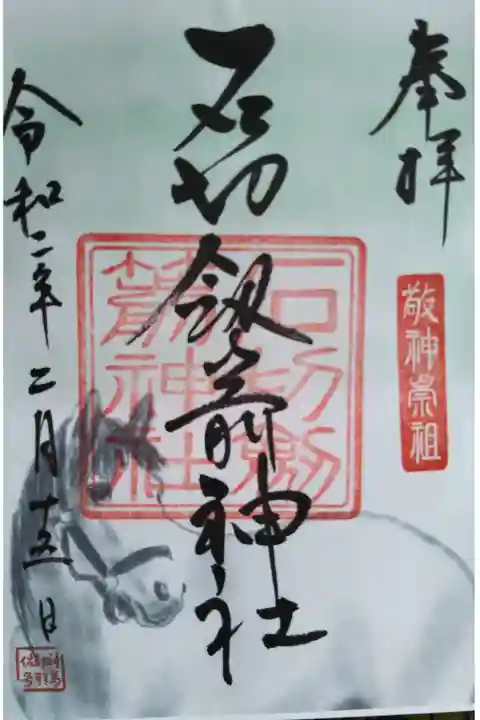 奉拝
敬神崇祖
石切劔箭神社
石切劔
箭神社
令和二年二月十五日